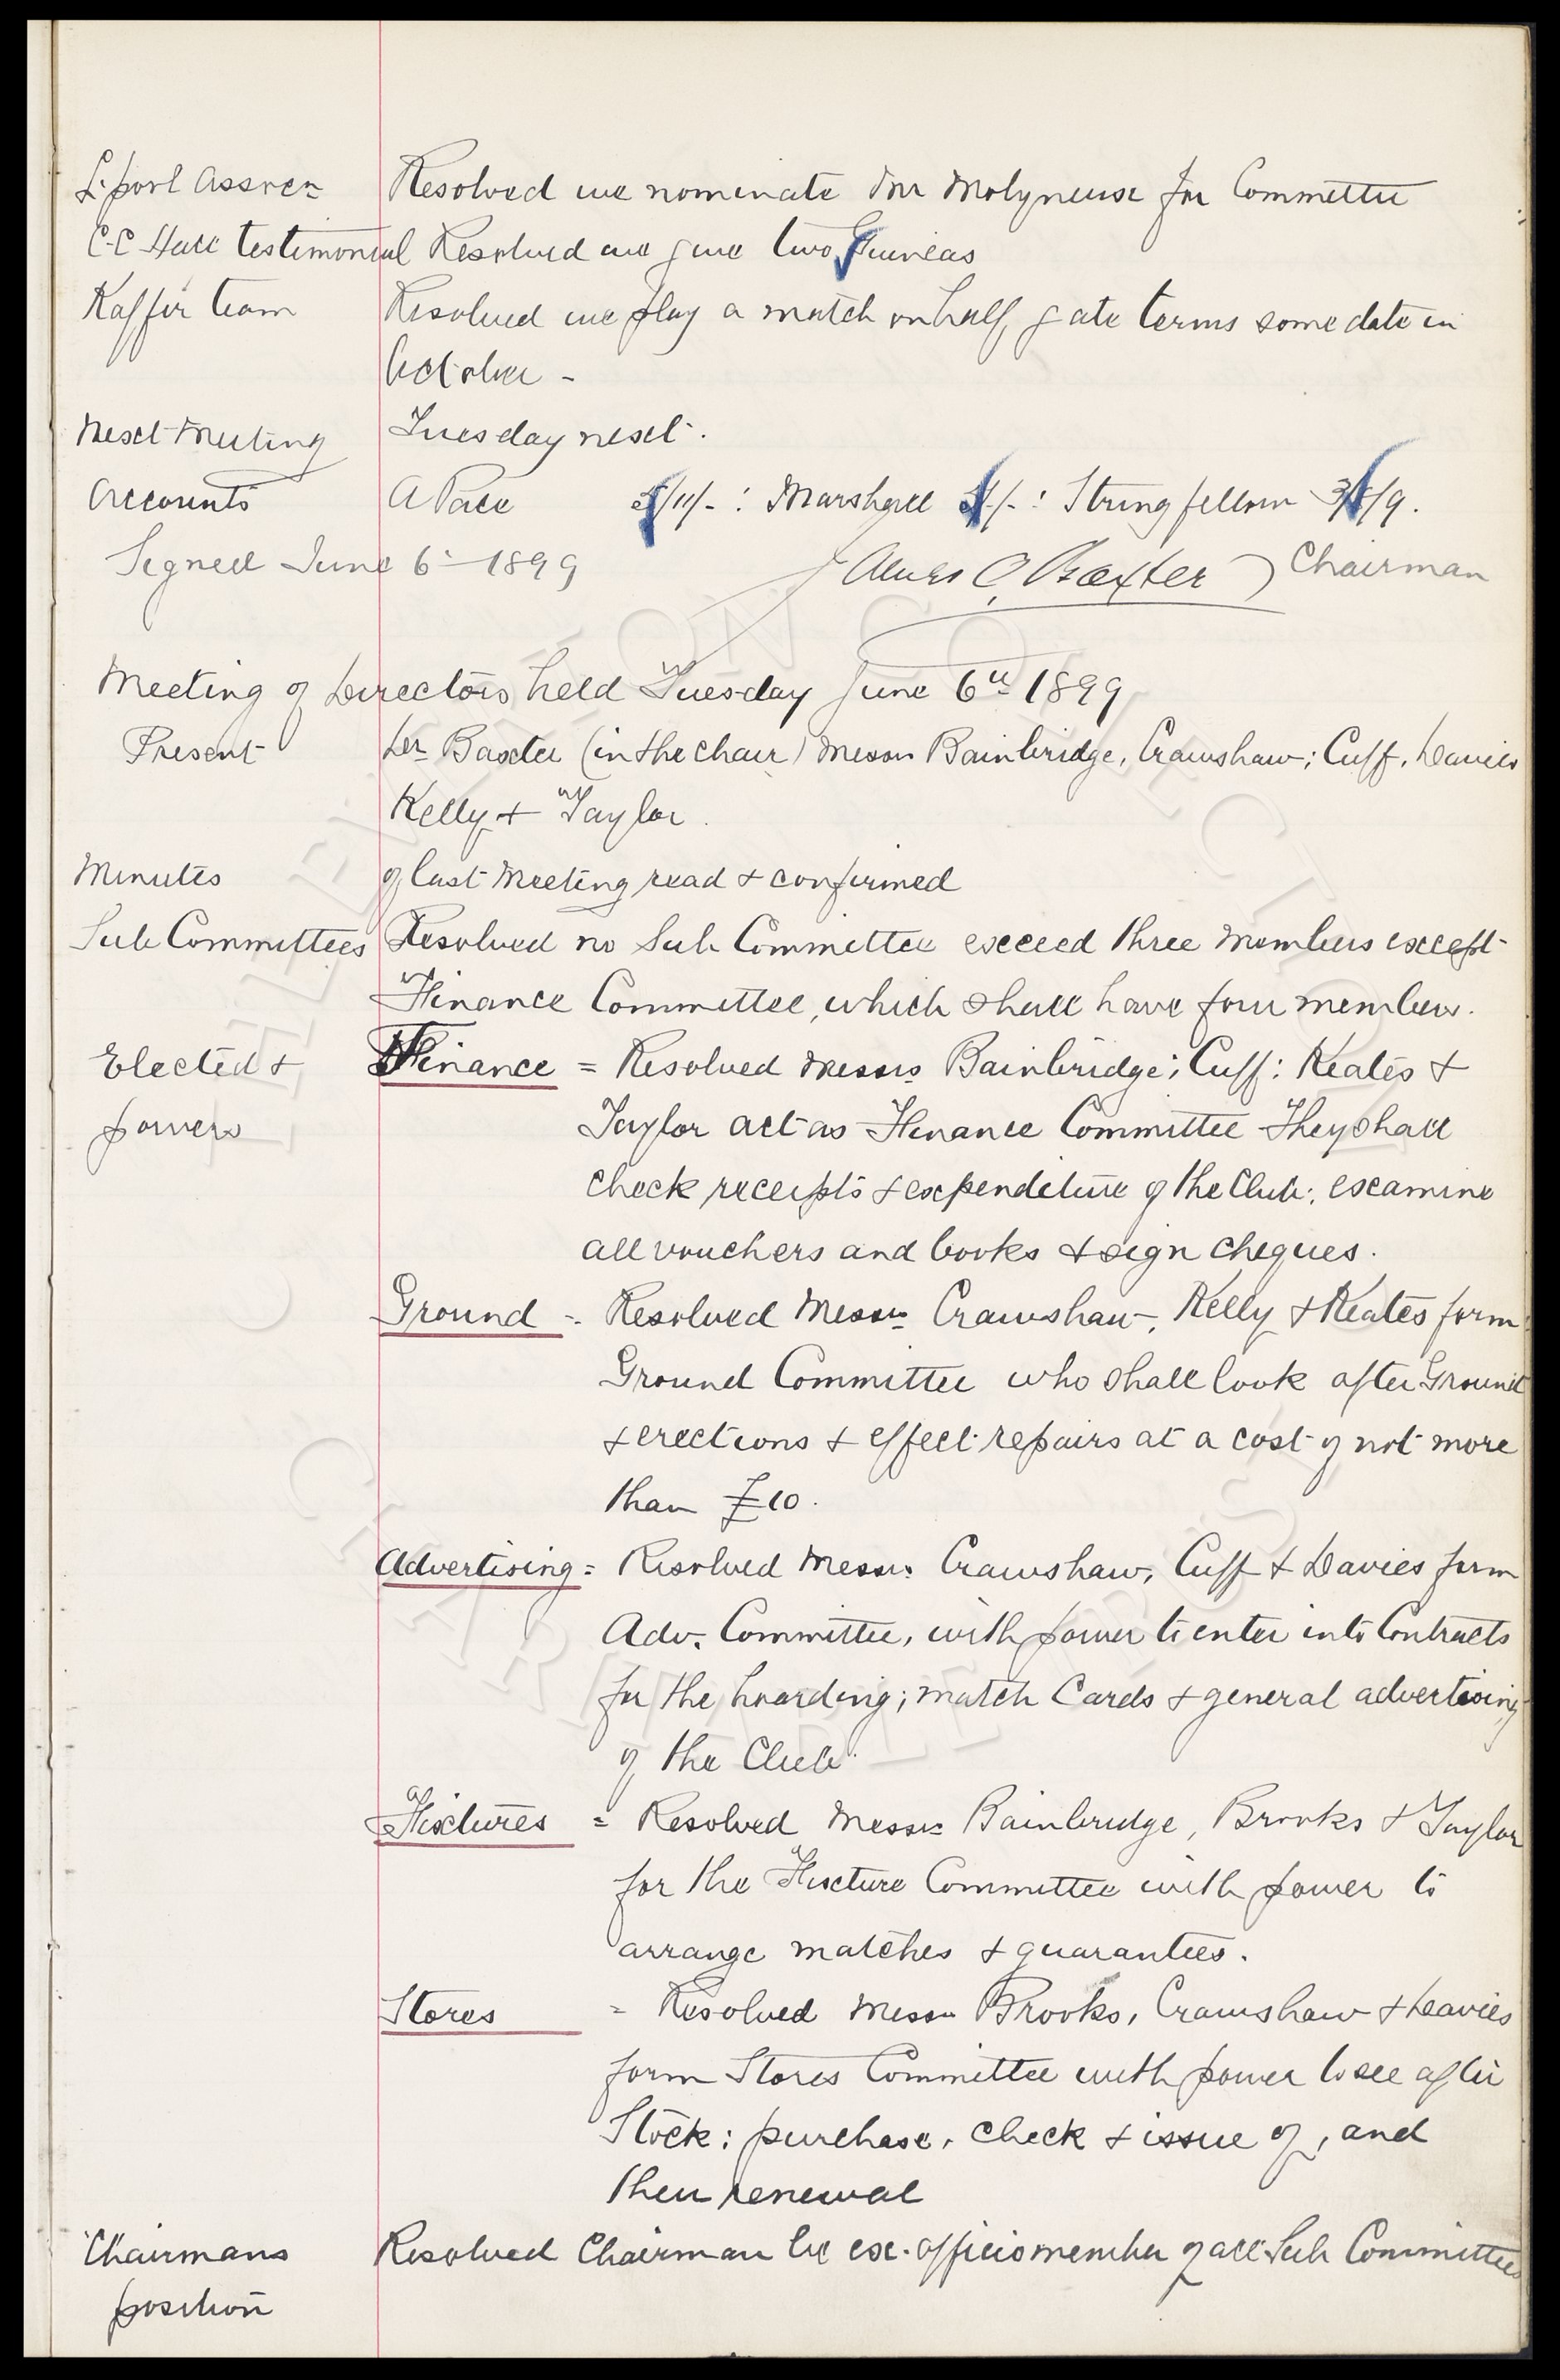 L'pool Asscn Resolved we nominate Mr Molyneux for Committee
C-C Hall testimonial Resolved we give two Guineas
Kaffir team Resolved we play a match on half gate terms some date in
October -
Next Meeting Tuesday next.
Accounts A Pace /11/- : Marshall /- : Stringfellow /9.
Signed June 6th 1899 C. Baxter Chairman
Meeting of Directors held Tuesday June 6th 1899
Present Dr Baxter (in the chair) Messrs Bainbridge, Crawshaw; Cuff, Davies
Kelly + Taylor.
Minutes of last Meeting read + confirmed
Sub Committees Resolved no Sub Committee exceed three members except
Finance Committee, which shall have four members.
Elected + Finance = Resolved Messrs Bainbridge; Cuff; Keates +
powers Taylor act as Finance Committee They shall
check receipts + expenditure of the Club; examine
all vouchers and books + sign cheques.
Ground - Resolved Messrs Crawshaw, Kelly + Keates form
Ground Committee who shall look after Ground
+ erections + effect repairs at a cost of not more
than £10.
Advertising = Resolved Messrs Crawshaw, Cuff + Davies form
Adv. Committee, with power to enter into Contracts
for the hoarding; match Cards + general advertising
of the Club.
Fixtures = Resolved Messrs Bainbridge, Brooks + Taylor
for the Fixture Committee with power to
arrange matches + guarantees.
Stores = Resolved Messrs Brooks, Crawshaw + Davies
form Stores Committee with power to see after
Stock; purchase, check + issue of, and
their renewal
Chairmans Resolved Chairman be ex. officio member of all Sub Committees
position